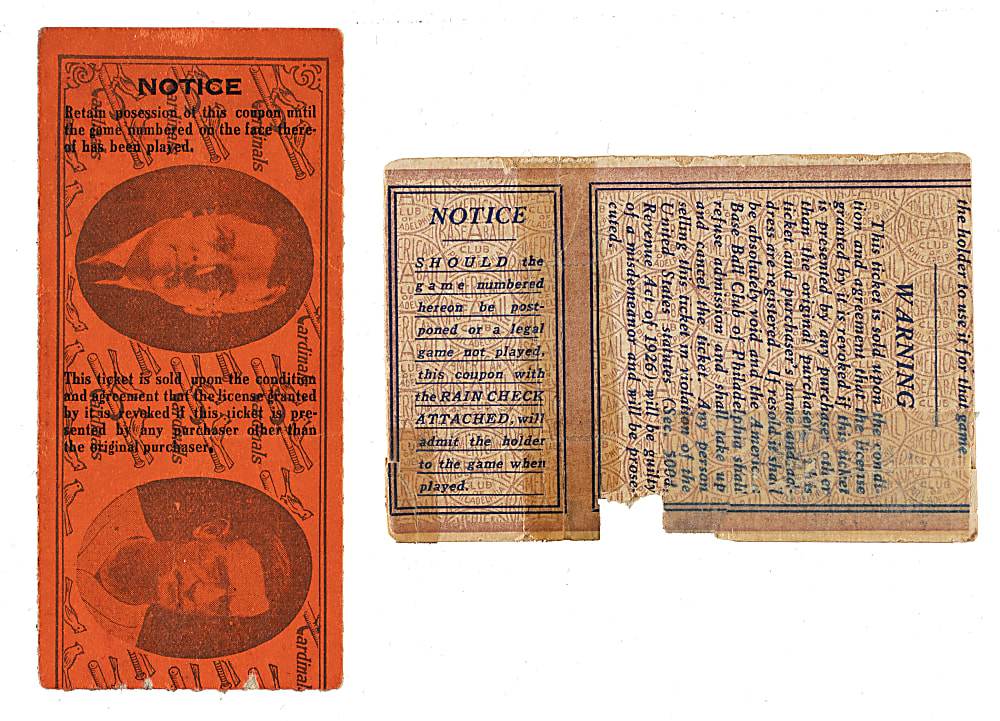 NOTICE
Retain posession of this coupon until
the game numbered on the face there-
of has been played.
Cardinals
Cardinals
Cardinals
Cardinals
This ticket is sold upon the condition
and agreement that the license granted
by it is reveked if this ticket is pre-
sented by any purchaser other than
the original purchaser.
Cardinals
Cardinals
Cardinals
Cardinals
NOTICE
SHOULD the
game numbered
hereon be post-
poned or a legal
game not played,
this coupon with
the RAIN CHECK
ATTACHED, will
admit the holder
to the game when
played.
the holder to use it for that game.
WARNING
This ticket is sold upon the condi-
tion and agreement that the license
granted by it is revoked if this ticket
is presented by any purchaser other
than the original purchaser. This
ticket and purchaser's name and ad-
dress are registered. If resold it shall
be absolutely void and the American
Base Ball Club of Philadelphia shall
refuse admission and shall take up
and cancel the ticket. Any person
selling this ticket in violation of the
United States Statutes (Sec. 500a.
Revenue Act of 1926) will be guilty
of a misdemeanor and will be prose-
cuted.